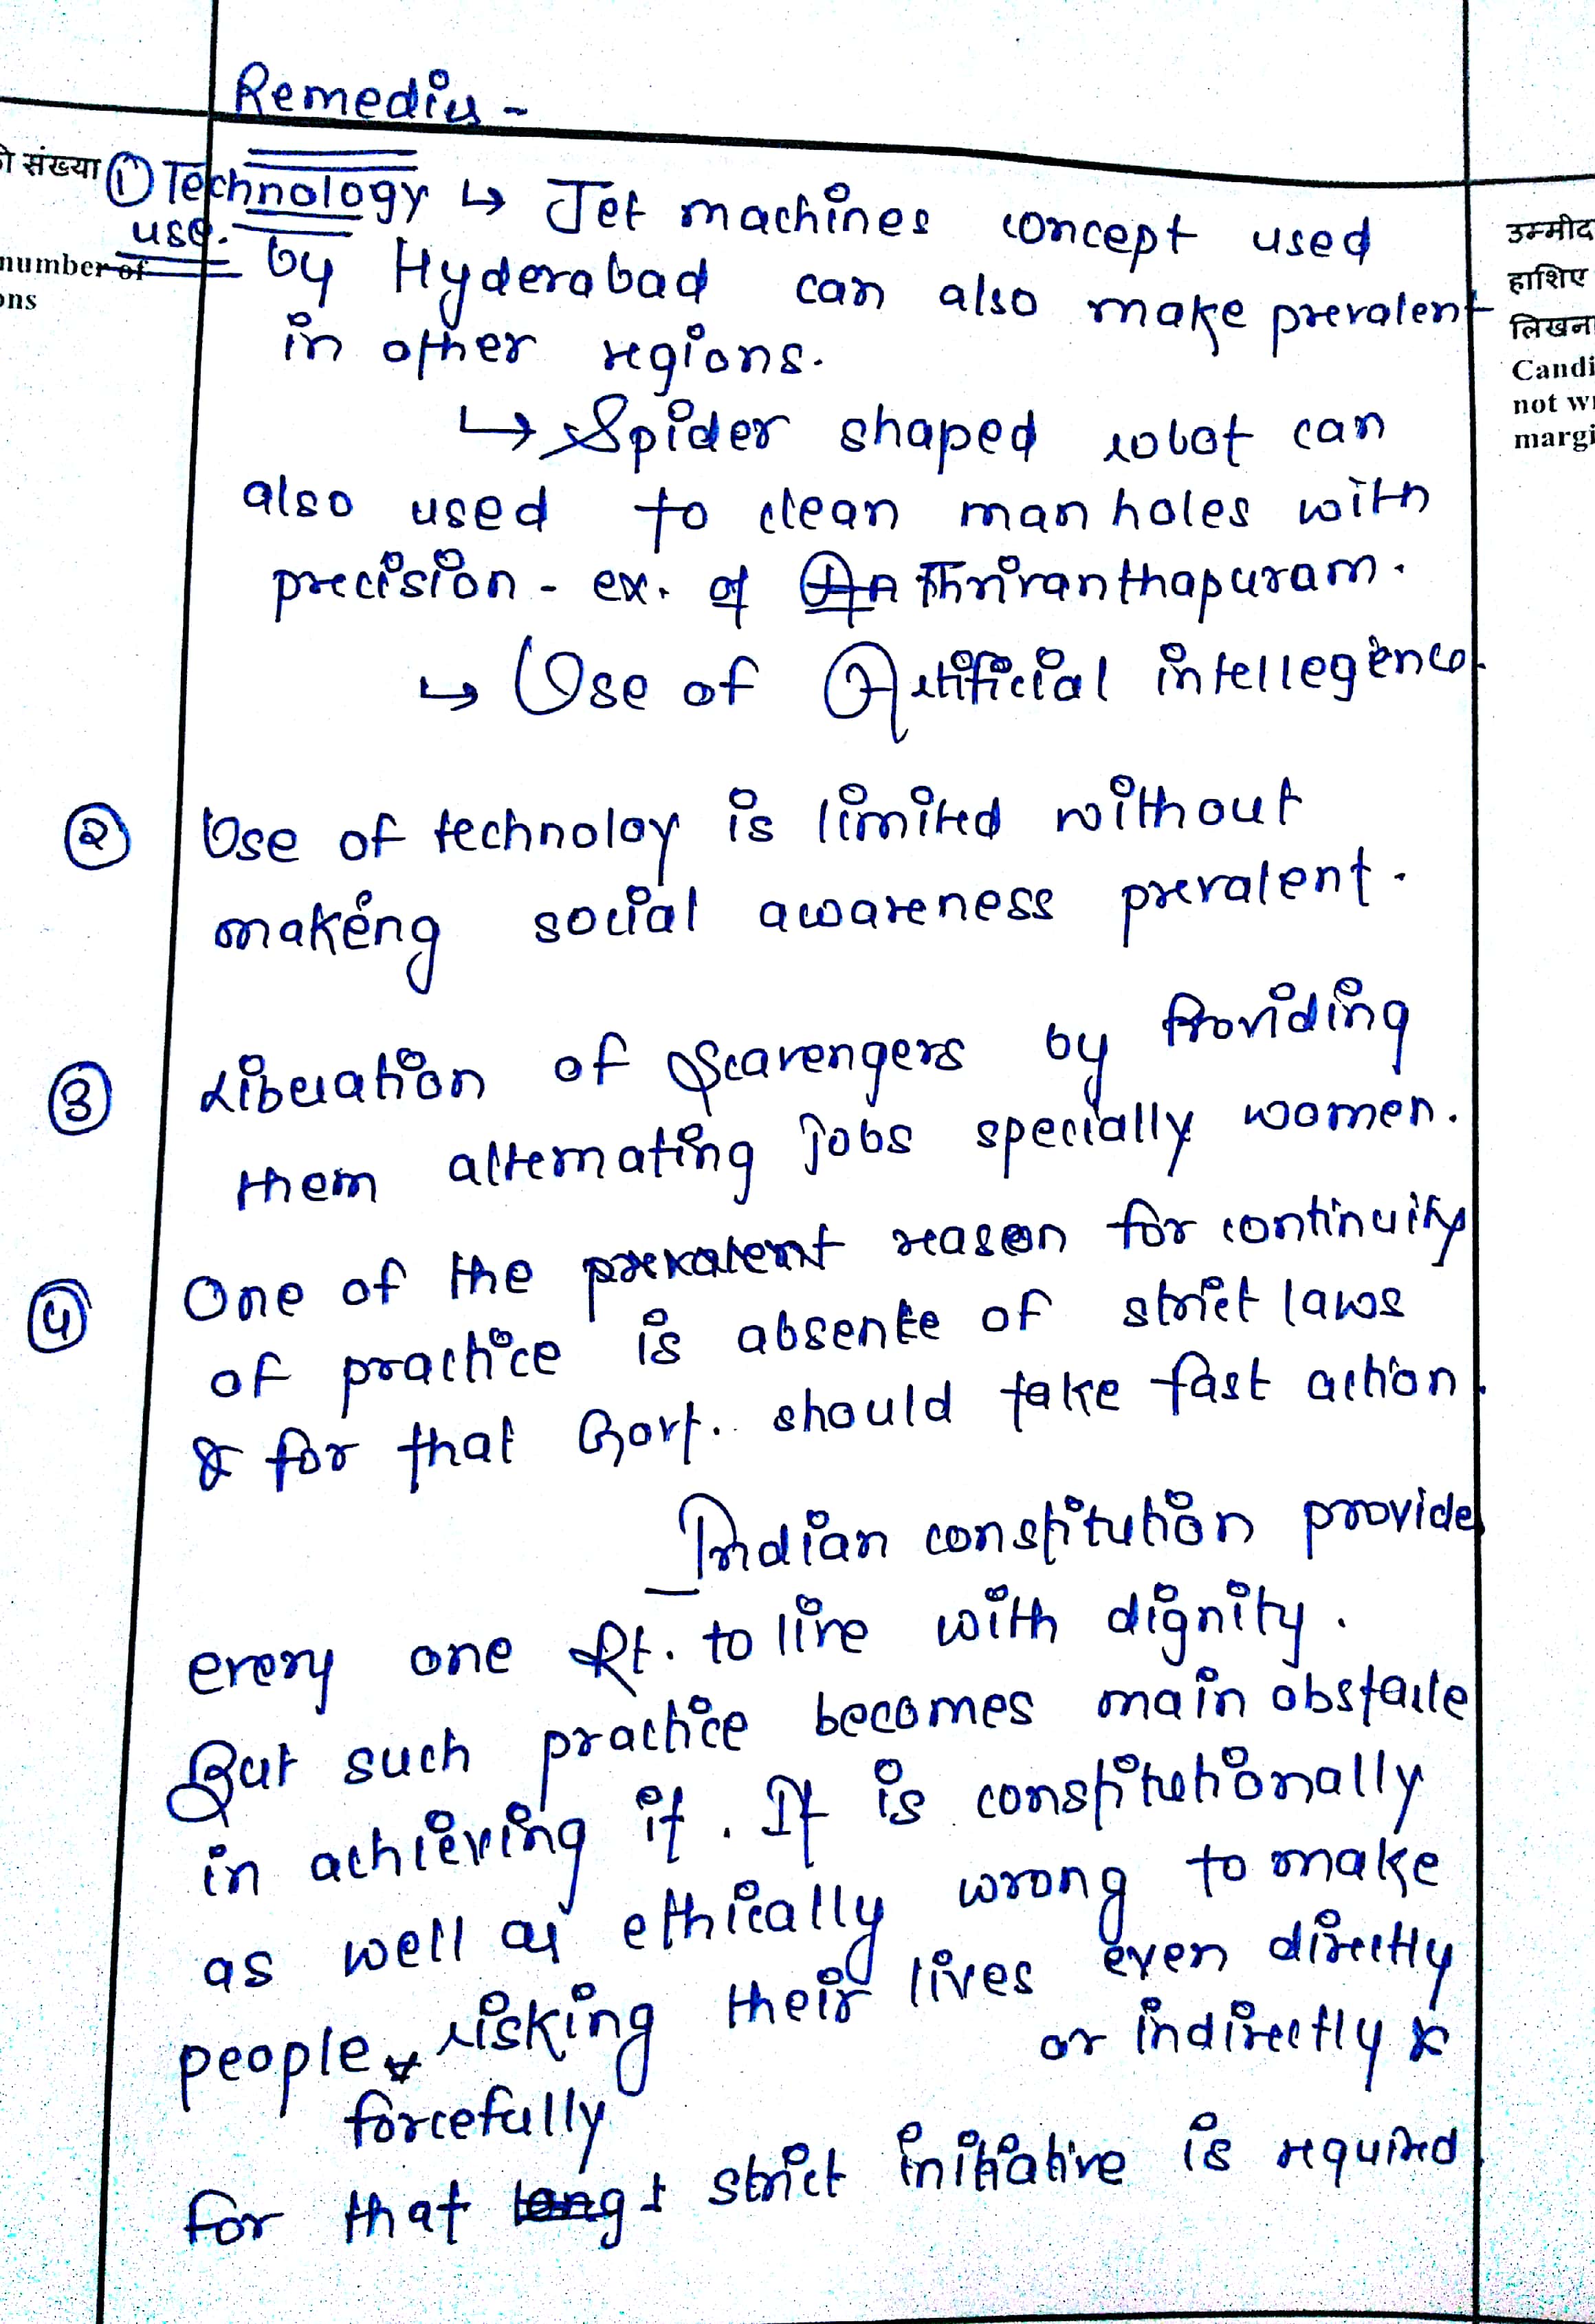 Remedies -
ो संख्या
① Technology ↳ Jet machines concept used
use.
number of
ons
by Hyderabad can also make prevalent
in other regions.
↳ Spider shaped robot can
also used to clean manholes with
precision - ex. of Thriranthapuram.
↳ Use of Artificial intellegence.
② Use of technoloy is limited without
making social awareness prevalent.
③ Liberation of Scavengers by Providing
them alternating jobs specially women.
④ One of the prevalent reason for continuity
of practice is absence of strict laws
& for that Govt. should take fast action.
Indian constitution provide
every one Rt. to live with dignity.
But such practice becomes main obstacle
in achieving it. It is constitutionally
as well as ethically wrong to make
people risking their lives even directly
forcefully
or indirectly &
for that strict initiative is required.
उम्मीद
हाशिए
लिखना
Candi
not wr
margi